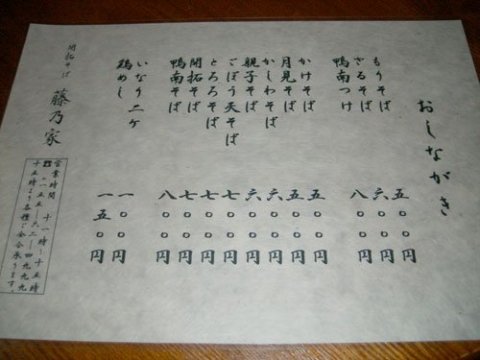 おしながき
もりそば 五〇〇円
ざるそば 六〇〇円
鴨南つけ 八〇〇円
かけそば 五〇〇円
月見そば 五〇〇円
かしわそば 六〇〇円
親子そば 六〇〇円
ごぼう天そば 七〇〇円
とろろそば 七〇〇円
開拓そば 七〇〇円
鴨南そば 八〇〇円
いなり二ケ 一〇〇円
鶏めし 一五〇円
開拓そば 藤乃家
営業時間 十一時〜十五時
十五時より各種ご会合承ります。